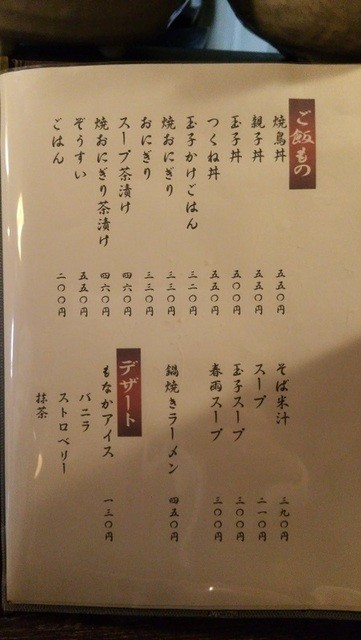 ご飯もの
焼鳥丼 五五〇円
親子丼 五五〇円
玉子丼 五〇〇円
つくね丼 五五〇円
玉子かけごはん 三二〇円
焼おにぎり 三三〇円
おにぎり 三三〇円
スープ茶漬け 四六〇円
焼おにぎり茶漬け 四六〇円
ぞうすい 五五〇円
ごはん 二〇〇円
そば米汁 三九〇円
スープ 二一〇円
玉子スープ 三〇〇円
春雨スープ 三〇〇円
鍋焼きラーメン 四五〇円
デザート
もなかアイス 一三〇円
バニラ
ストロベリー
抹茶